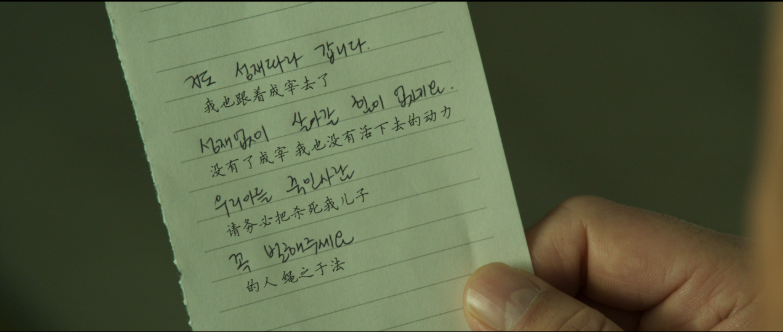 저도 성재따라 갑니다.
我也跟着成宰去了
성재없이 살아갈 힘이 없지요.
没有了成宰 我也没有活下去的动力
우리아들 죽인사람
请务必把杀死我儿子
꼭 벌해주세요
的人 绳之于法